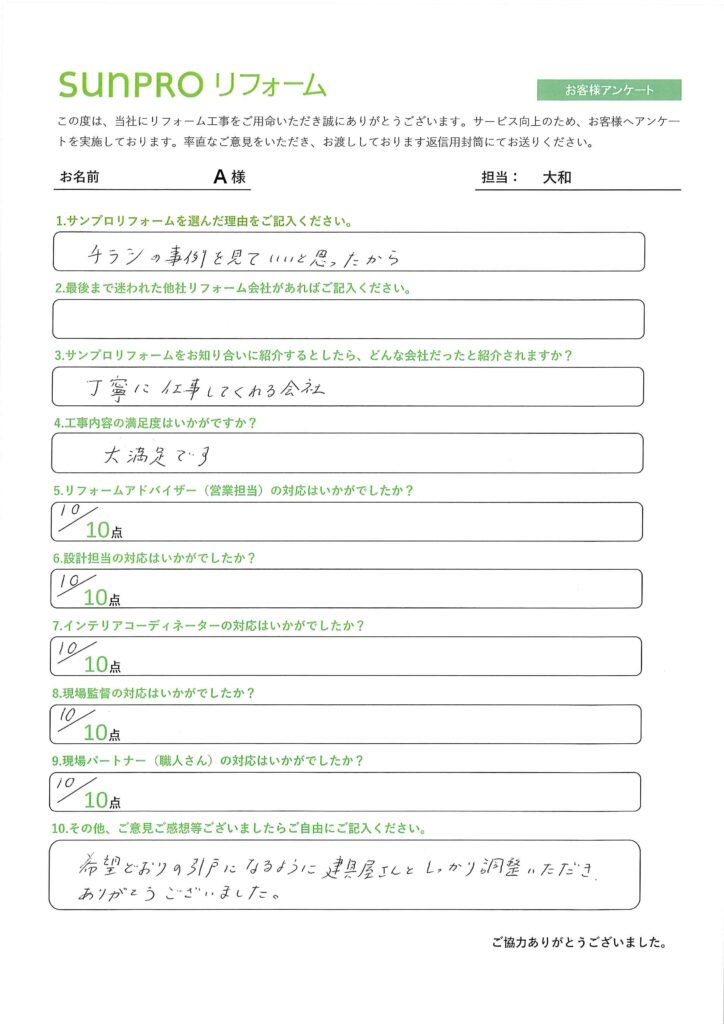 SUNPRO リフォーム
お客様アンケート
この度は、当社にリフォーム工事をご用命いただき誠にありがとうございます。サービス向上のため、お客様へアンケー
トを実施しております。率直なご意見をいただき、お渡ししております返信用封筒にてお送りください。
お名前 A 様 担当： 大和
1.サンプロリフォームを選んだ理由をご記入ください。
チラシの事例を見ていいと思ったから
2.最後まで迷われた他社リフォーム会社があればご記入ください。
3.サンプロリフォームをお知り合いに紹介するとしたら、どんな会社だったと紹介されますか？
丁寧に仕事してくれる会社
4.工事内容の満足度はいかがですか？
大満足です
5.リフォームアドバイザー（営業担当）の対応はいかがでしたか？
10/10点
6.設計担当の対応はいかがでしたか？
10/10点
7.インテリアコーディネーターの対応はいかがでしたか？
10/10点
8.現場監督の対応はいかがでしたか？
10/10点
9.現場パートナー（職人さん）の対応はいかがでしたか？
10/10点
10.その他、ご意見ご感想等ございましたらご自由にご記入ください。
希望どおりの引戸になるように建具屋さんとしっかり調整いただき、
ありがとうございました。
ご協力ありがとうございました。